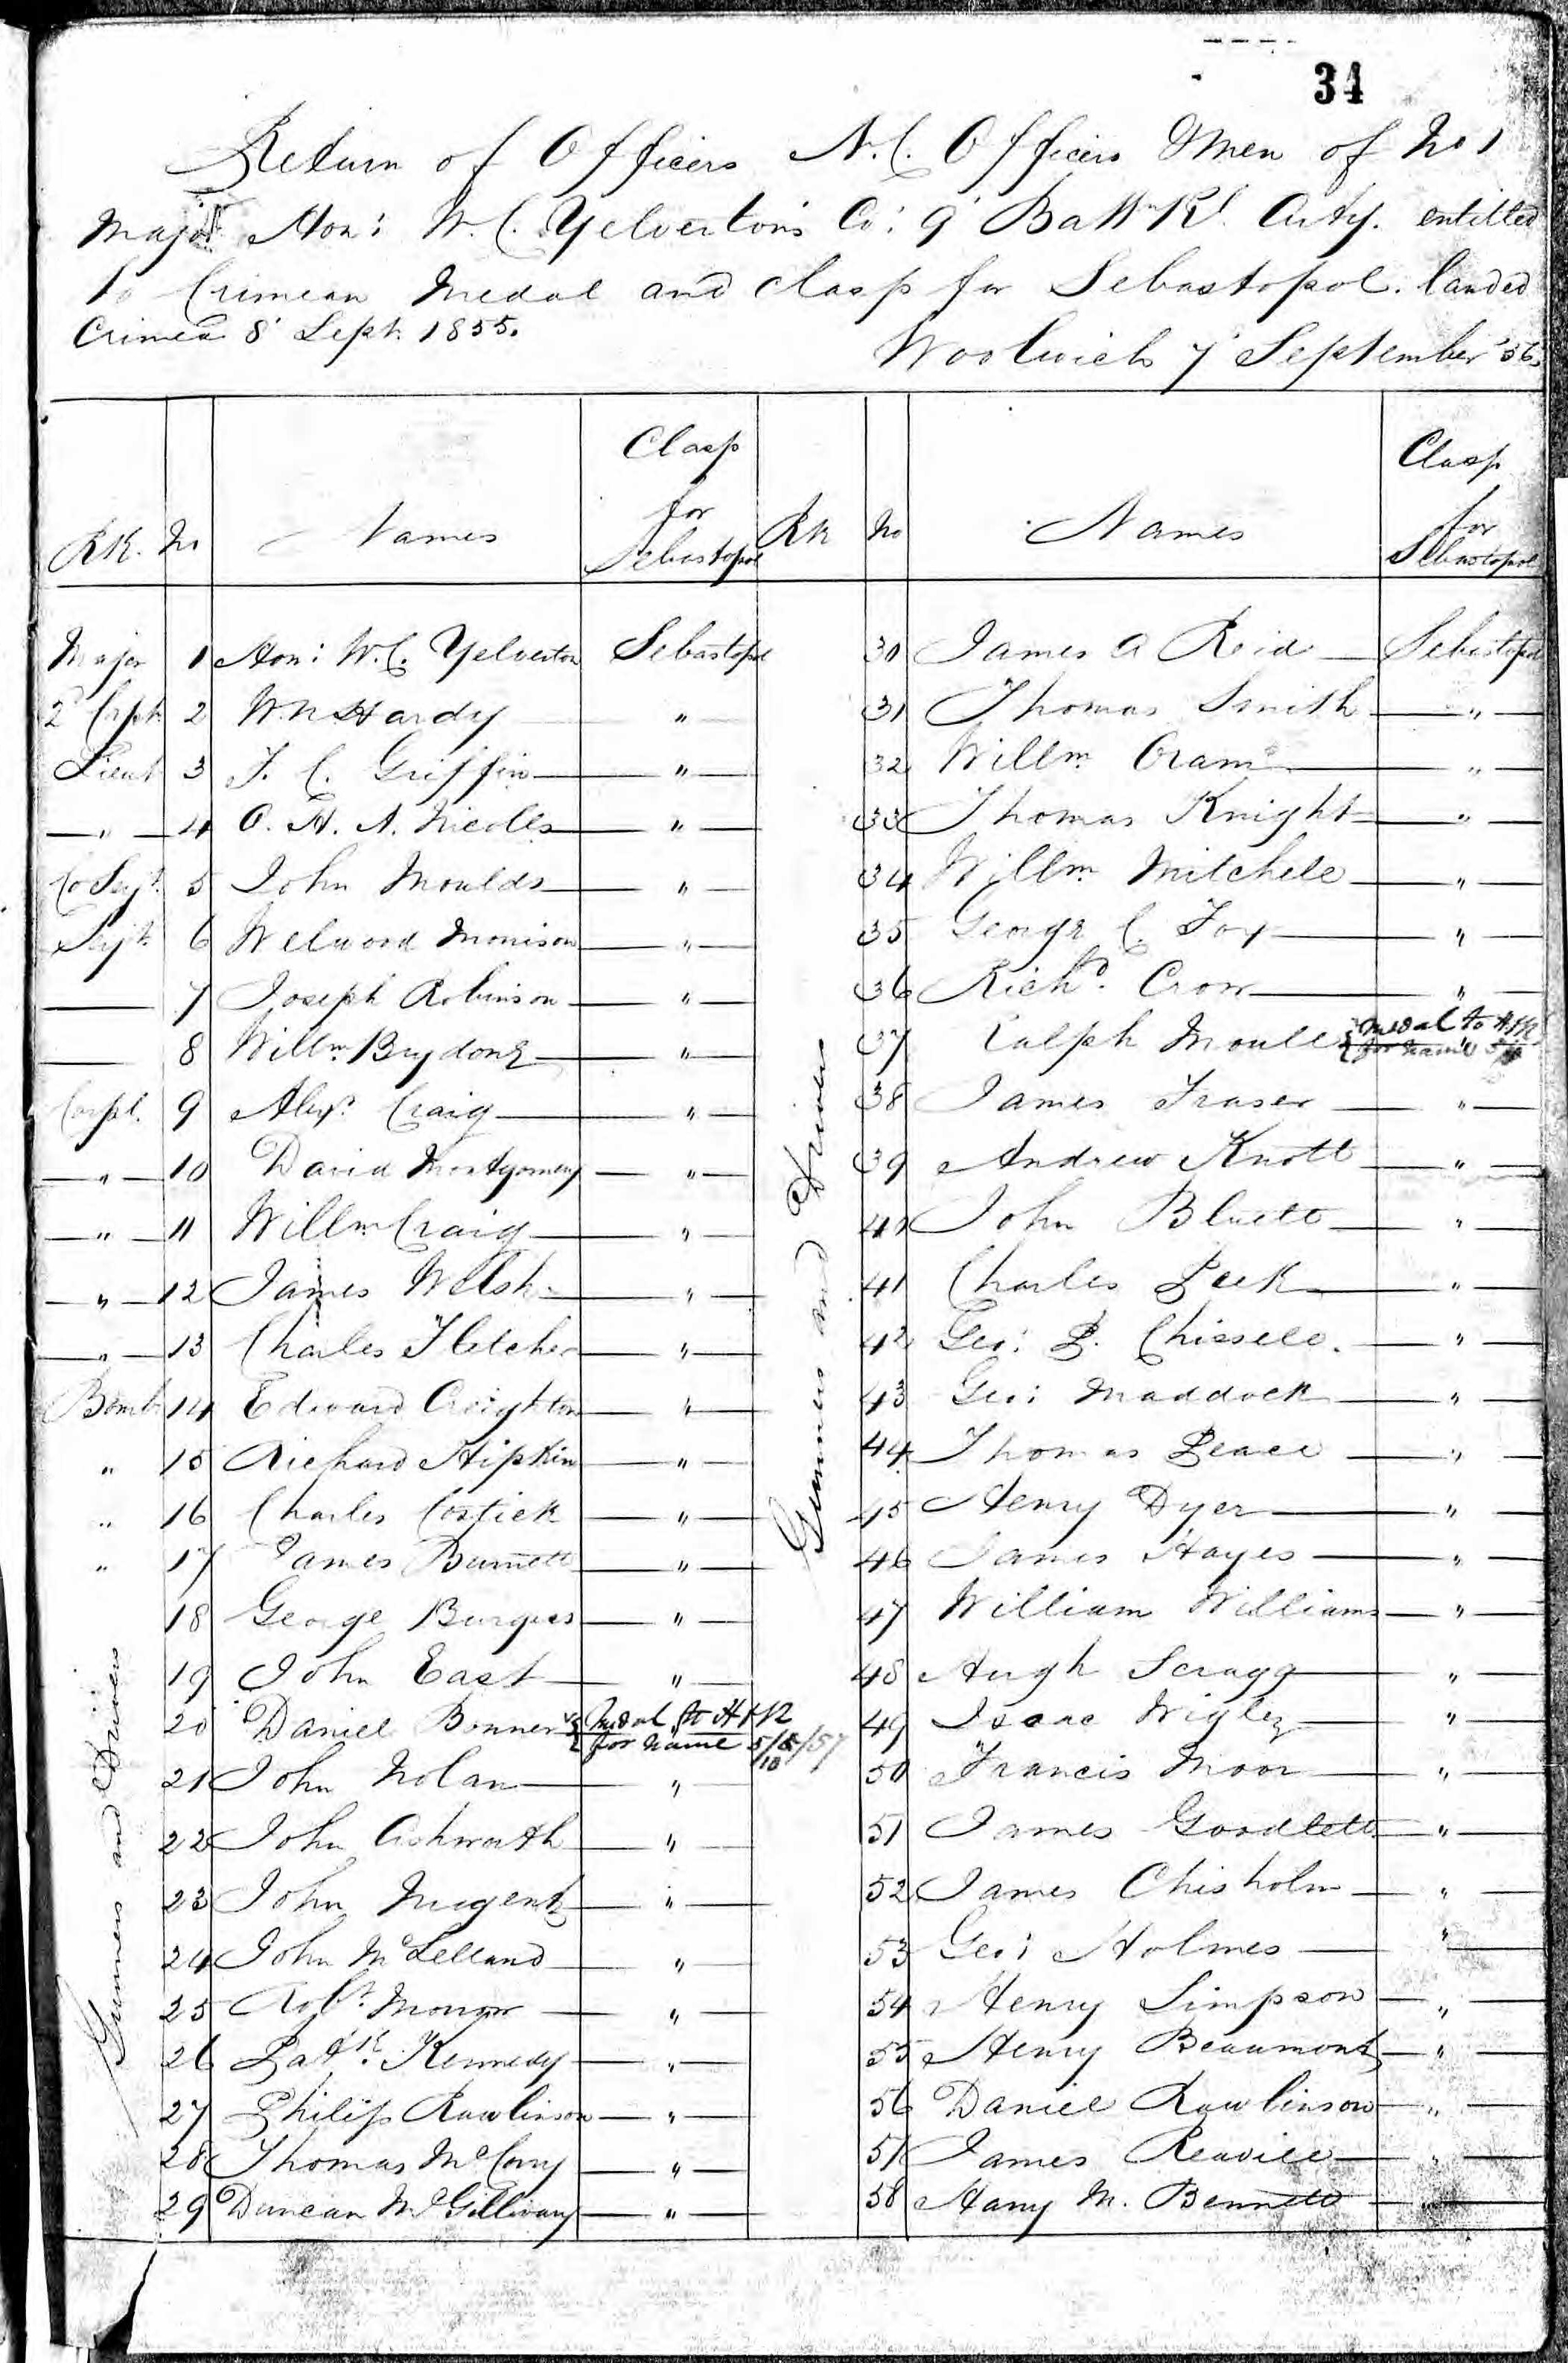 34
Return of Officers N.C. Officers & Men of No 1
Major Hon: W.C. Yelverton's Co: 9' Battn Rl. Arty. entitled
to Crimean Medal and clasp for Sebastopol. landed
Crimea 8' Sept. 1855.
Woolwich 7' September '56.
RK. No Names Clasp for Sebastopol
Rk No Names Clasp for Sebastopol
Major 1 Hon: W.C. Yelverton Sebastopol
2d Capt 2 W.N. Hardy "
Lieut 3 F. C. Griffin "
" 4 O. H. A. Nicolls "
Co Sergt. 5 John Moulds "
Sergt. 6 Welwood Morrison "
7 Joseph Robinson "
8 Willm Brydone "
Corpl. 9 Alexr. Craig "
" 10 David Montgomery "
" 11 Willm Craig "
" 12 James Welsh "
" 13 Charles Fletcher "
Bomb. 14 Edward Creighton "
" 15 Richard Hipkin "
" 16 Charles Costick "
" 17 James Burnett "
Gunners and Drivers
18 George Burgess "
19 John East "
20 Daniel Bonner Medal to H.M.
for name 5/10/57
21 John Nolan "
22 John Ashworth "
23 John Nugent "
24 John McLelland "
25 Robt. Morrow "
26 Patk. Kennedy "
27 Philip Rawlinson "
28 Thomas McCorry "
29 Duncan McGillivary "
Gunners and Drivers
30 James A Reid Sebastopol
31 Thomas Smith "
32 Willm. Oram "
33 Thomas Knight "
34 Willm Mitchell "
35 George C. Fox "
36 Richd. Crow "
37 Ralph Moule Medal to
for name
38 James Fraser "
39 Andrew Knott "
40 John Bluett "
41 Charles Peek "
42 Geo: P. Chissell. "
43 Geo: Maddock "
44 Thomas Peace "
45 Henry Dyer "
46 James Hayes "
47 William Williams "
48 Hugh Scragg "
49 Isaac Wigley "
50 Francis Moor "
51 James Goodlett "
52 James Chisholm "
53 Geo: Holmes "
54 Henry Simpson "
55 Henry Beaumont "
56 Daniel Rawlinson "
57 James Reavill "
58 Harry M. Bennett "